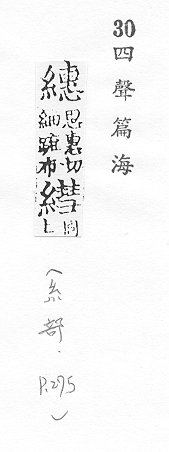 30 四聲篇海
繐
思惠切
細踈布
同
上
(糸部.P.275)